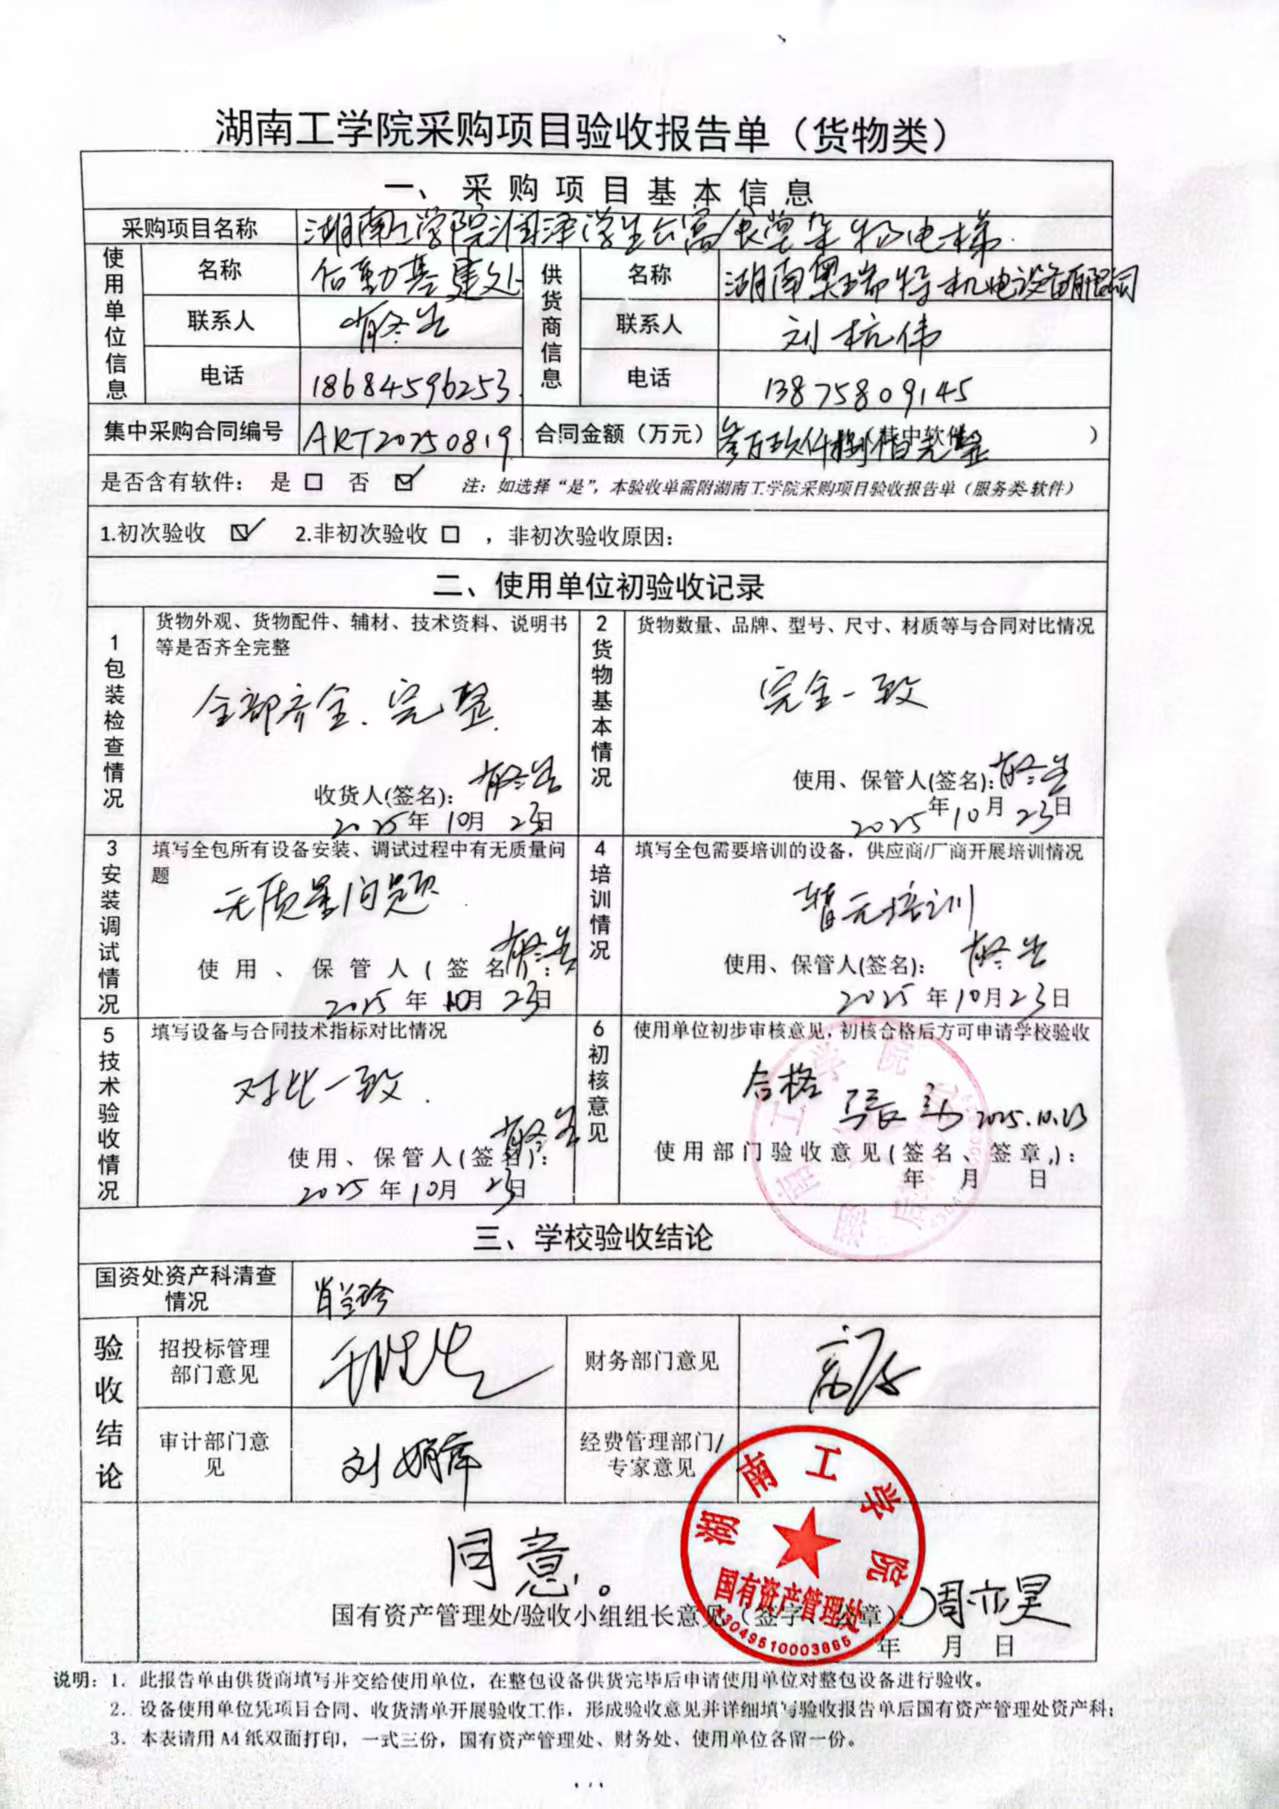 湖南工学院采购项目验收报告单（货物类）
一、采购项目基本信息
采购项目名称 湖南工学院润泽学生公寓食堂杂物电梯
使用单位信息 名称 后勤基建处 供货商信息 名称 湖南奥瑞特机电设备有限公司
联系人 联系人 刘杭伟
电话 18684596253 电话 13875809145
集中采购合同编号 ART20250819 合同金额（万元） 其中软件 ）
是否含有软件： 是 □ 否 ☑ 注：如选择“是”，本验收单需附湖南工学院采购项目验收报告单（服务类-软件）
1.初次验收 ☑ 2.非初次验收 □ ，非初次验收原因：
二、使用单位初验收记录
1 包装检查情况 货物外观、货物配件、辅材、技术资料、说明书等是否齐全完整
全部齐全、完整
收货人(签名):
2025年10月23日
2 货物基本情况 货物数量、品牌、型号、尺寸、材质等与合同对比情况
完全一致
使用、保管人(签名):
2025年10月23日
3 安装调试情况 填写全包所有设备安装、调试过程中有无质量问题
无质量问题
使用、保管人(签名):
2025年10月23日
4 培训情况 填写全包需要培训的设备，供应商/厂商开展培训情况
暂无培训
使用、保管人(签名):
2025年10月23日
5 技术验收情况 填写设备与合同技术指标对比情况
对比一致.
使用、保管人(签名):
2025年10月23日
6 初核意见 使用单位初步审核意见，初核合格后方可申请学校验收
合格 2025.10.23
使用部门验收意见(签名、签章,):
年 月 日
三、学校验收结论
国资处资产科清查情况 肖兰珍
验收结论 招投标管理部门意见 财务部门意见
审计部门意见 刘娟萍 经费管理部门/专家意见
同意。
国有资产管理处/验收小组组长意见（签字、公章）: 周亦昊
年 月 日
湖南工学院
国有资产管理处
说明：1. 此报告单由供货商填写并交给使用单位，在整包设备供货完毕后申请使用单位对整包设备进行验收。
2. 设备使用单位凭项目合同、收货清单开展验收工作，形成验收意见并详细填写验收报告单后国有资产管理处资产科;
3. 本表请用 A4 纸双面打印，一式三份，国有资产管理处、财务处、使用单位各留一份。